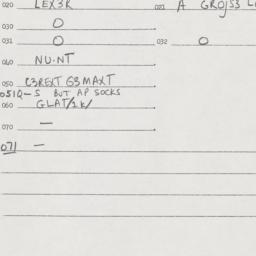 020 LEX3R 021 A GROJS3 L
030 O
031 O 032 O
040 NU·NT
050 C3REXT G3MAXT
051Q-S BUT AP SOCKS
060 GLAT/1K/
070 —
071 —